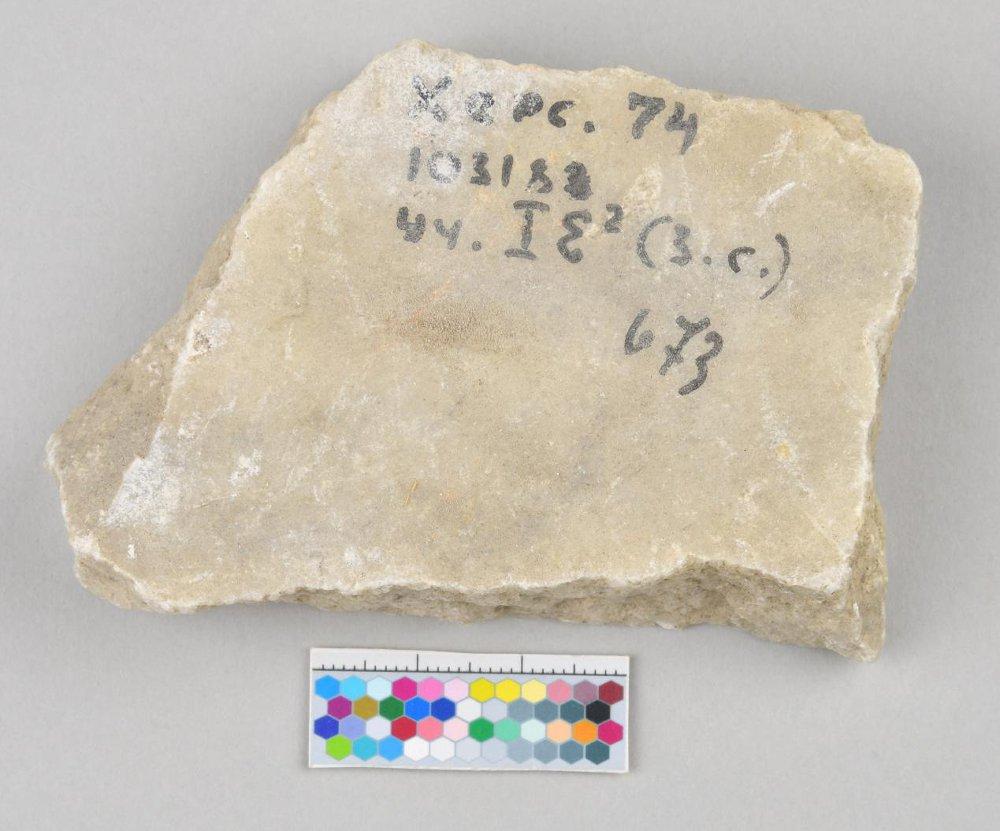 Херс. 74
103183
уч. I Ɛ² (з.с.)
673